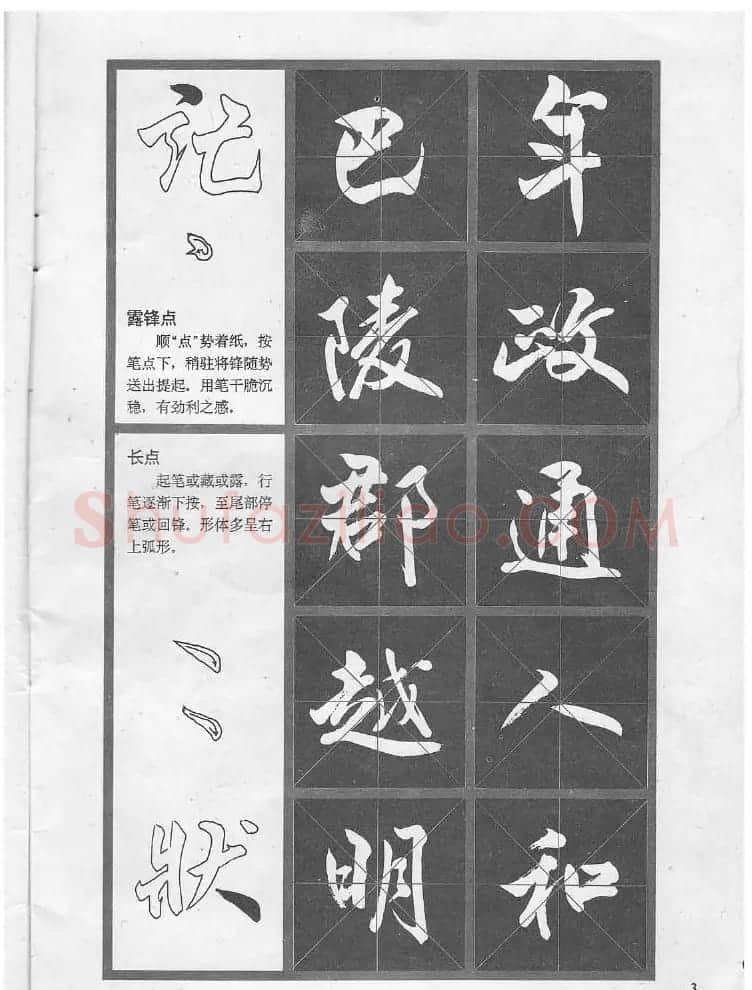 露锋点
顺“点”势着纸，按
笔点下，稍驻将锋随势
送出提起。用笔干脆沉
稳，有劲利之感。
长点
起笔或藏或露，行
笔逐渐下按，至尾部停
笔或回锋。形体多呈右
上弧形。
狀
巴陵郡越明
年政通人和
Shufaziliao.COM
3